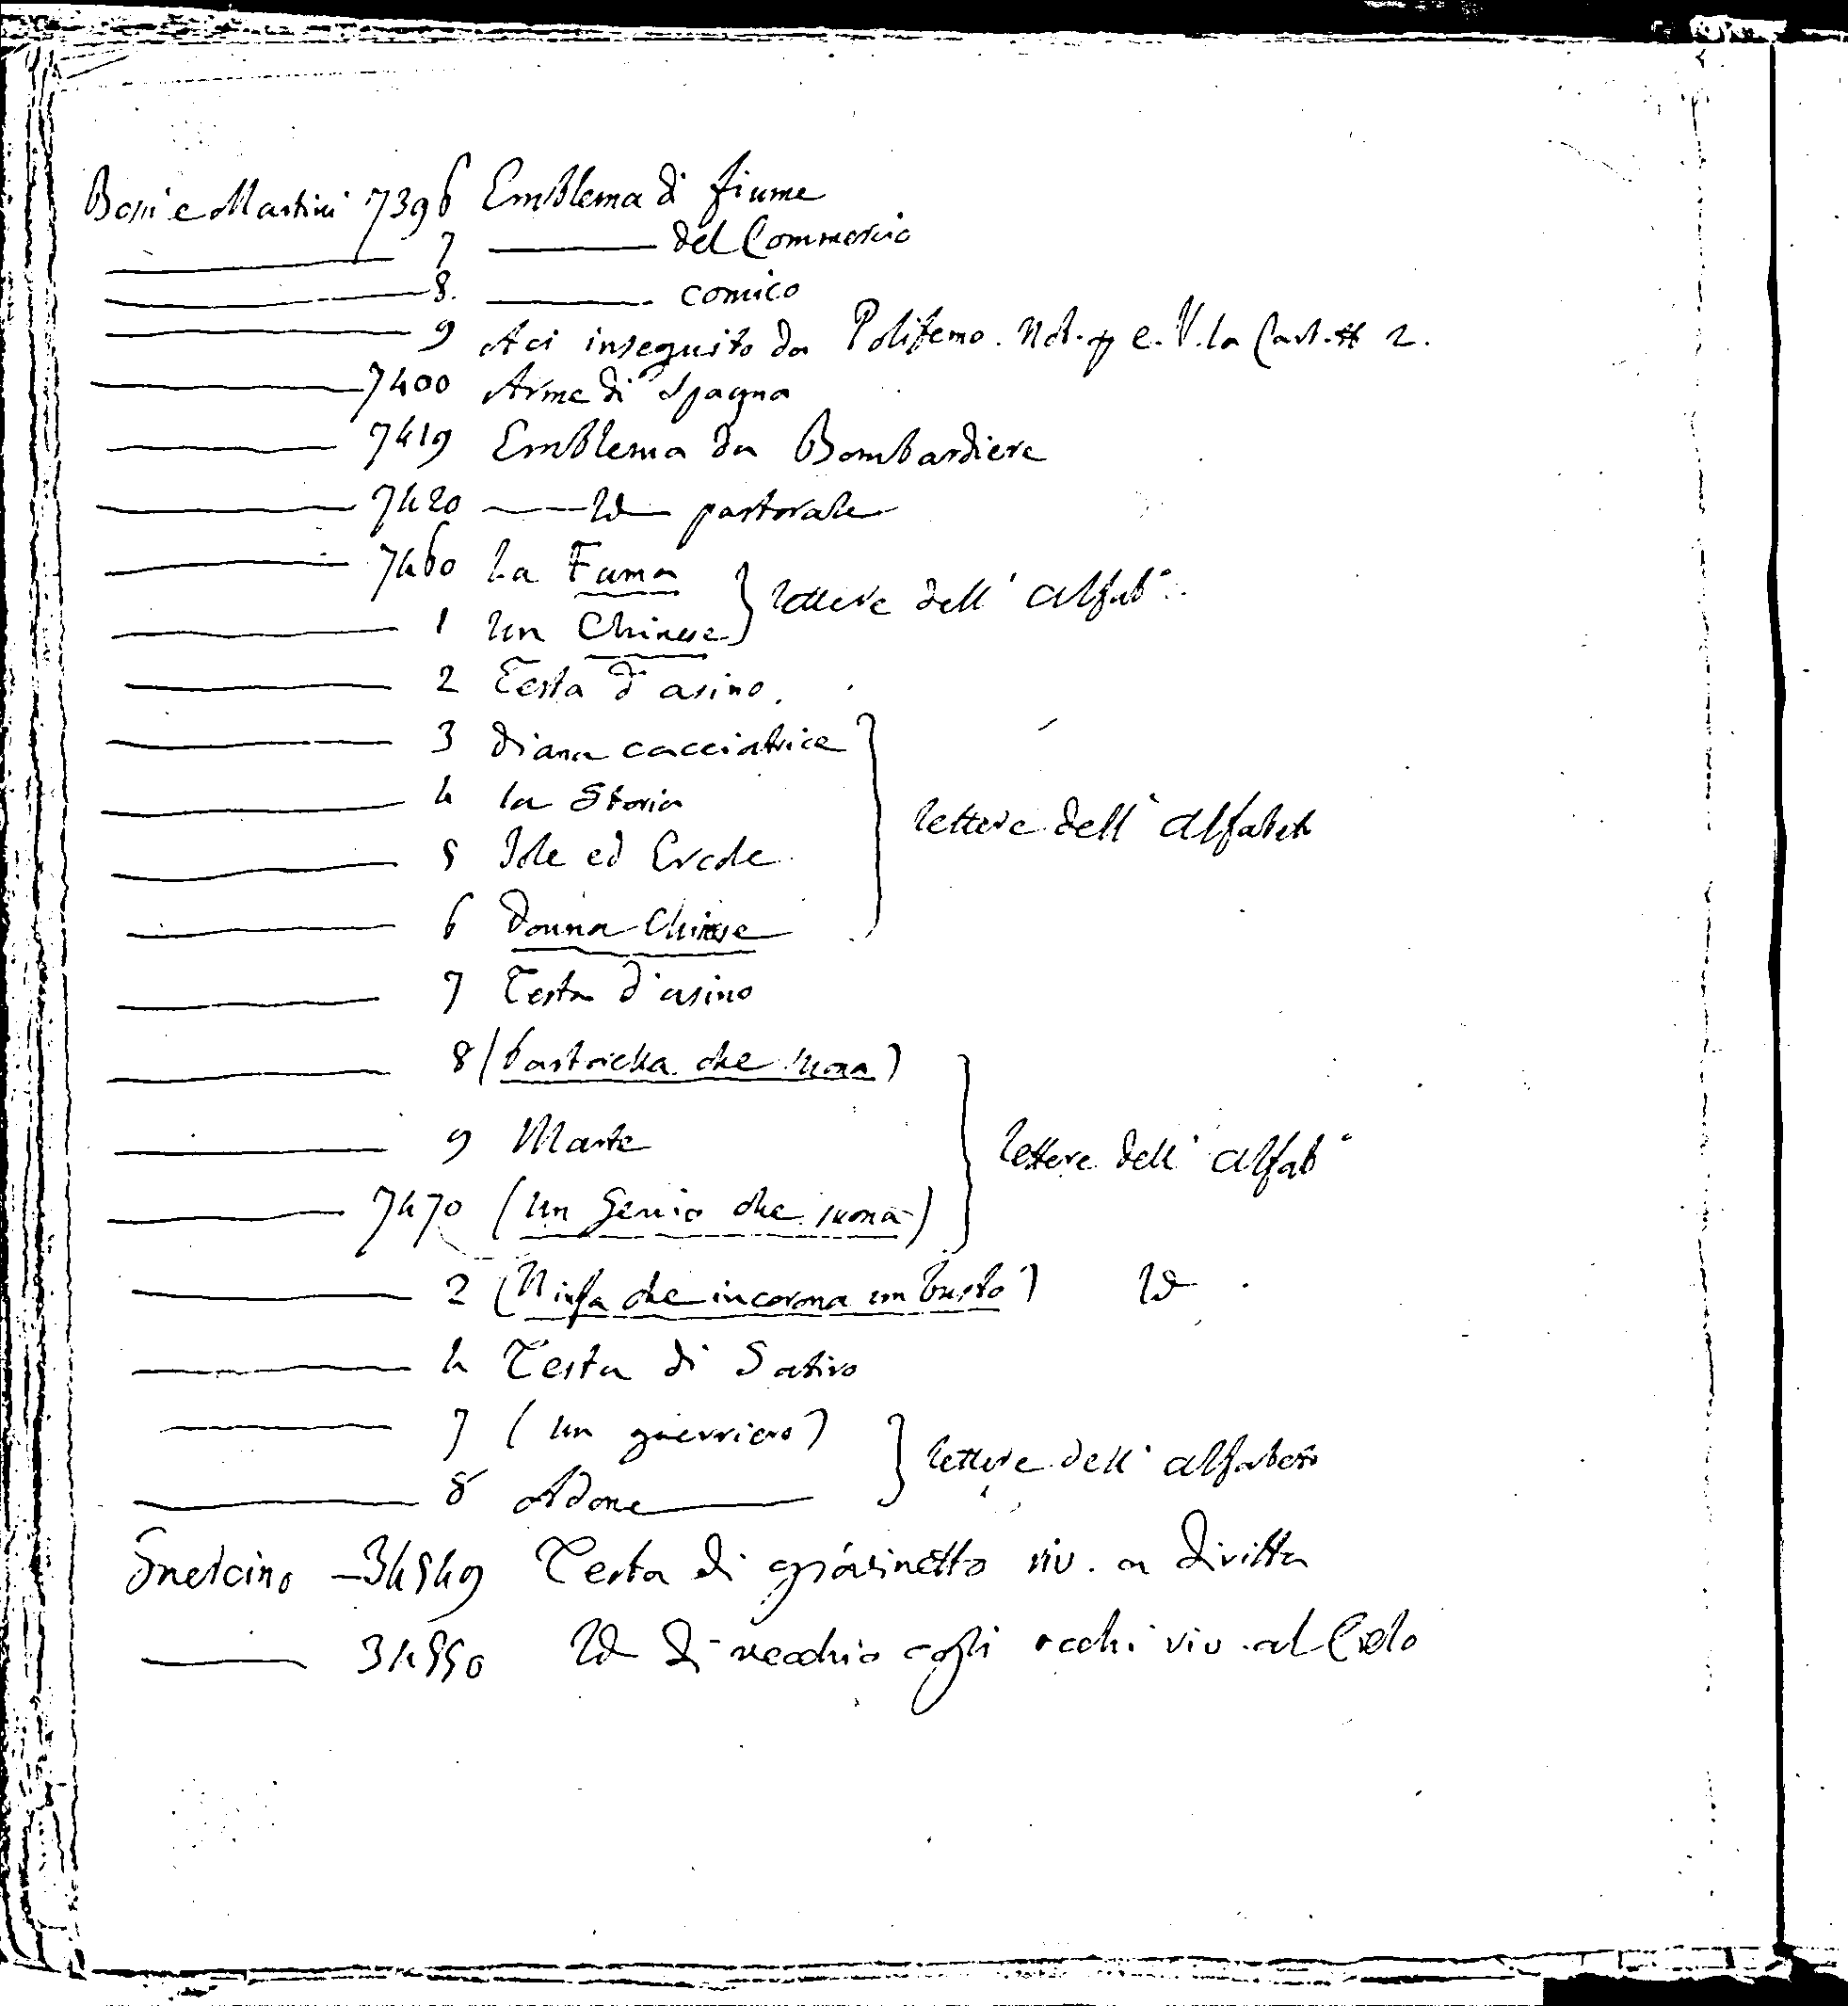 Boni e Martini 7396 Emblema di fiume
7 ——— del Commercio
8. ——— comico
9 Aci inseguito da Polifemo. Not. e. V. la Cart. 2.
7400 Arme di Spagna
7419 Emblema da Bombardiere
7420 —— Id — pastorale
7460 La Fama } lettere dell' alfab°
1 Un Chinese
2 Testa d'asino.
3 Diana cacciatrice
4 la Storia } lettere dell' alfabeto
5 Iole ed Ercole
6 Donna Chinese
7 Testa d'asino
8 ( che suona)
9 Marte } lettere dell' alfab°
7470 (Un Genio che suona)
2 (Ninfa che incorona un busto) Id
4 Testa di Satiro
7 (Un guerriero) } lettere dell' alfabeto
8 Adone ———
Guercino — 34549 Testa di giovinetto riv. a diritta
——— 34550 Id di vecchio cogli occhi riv. al Cielo